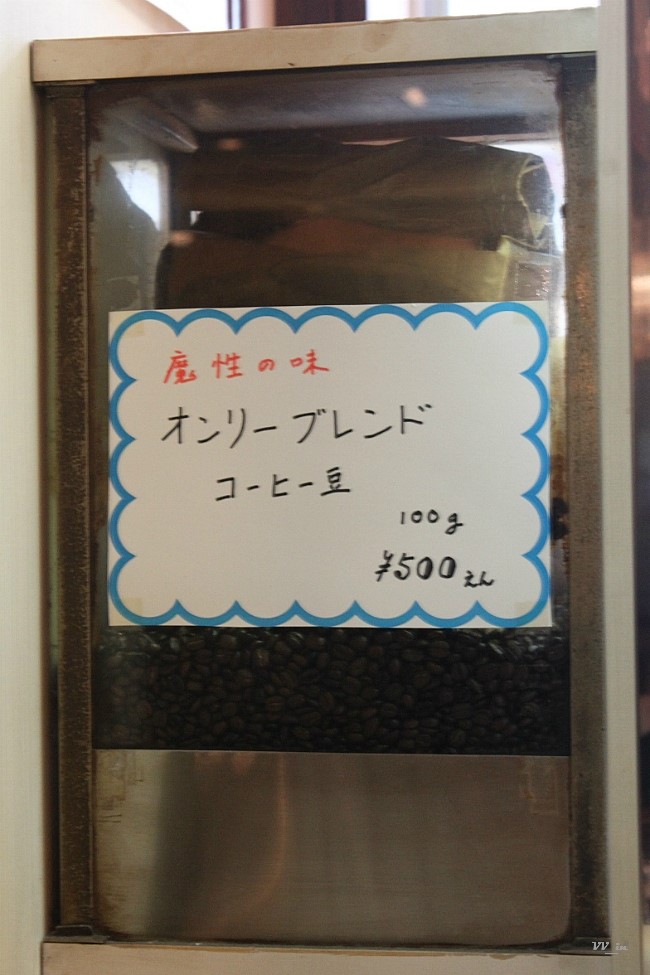 魔性の味
オンリーブレンド
コーヒー豆
100g
¥500えん